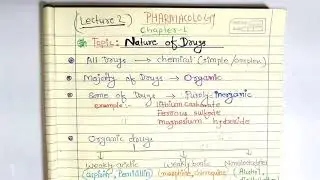 Lecture 2
PHARMACOLOGY
Chapter-1
Topic: Nature of Drugs
All Drugs → chemical (simple/complex)
Majority of Drugs → Organic
Some of Drugs → Purely Inorganic
example:- lithium carbonate
Ferrous sulfate
magnesium hydroxide
Organic drugs
Weakly acidic Weakly basic Nonelectrolytes
(aspirin, Penicillin) (morphine, (Alcohol,